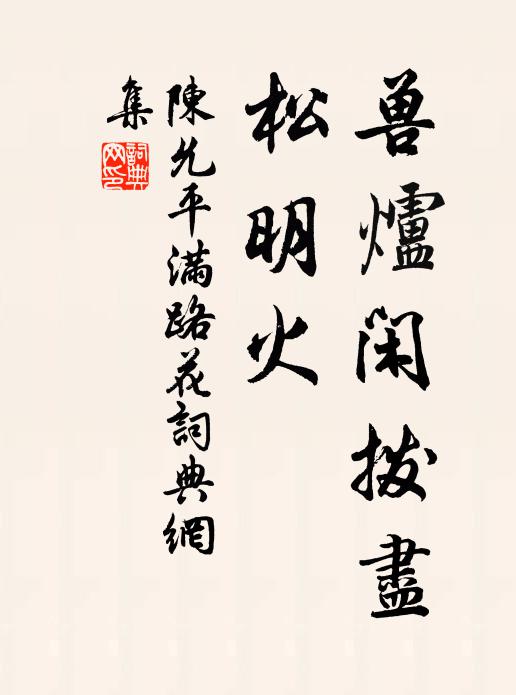 兽爐闲拨盡
松明火
陳允平满路花詞典網
集
詞典網印